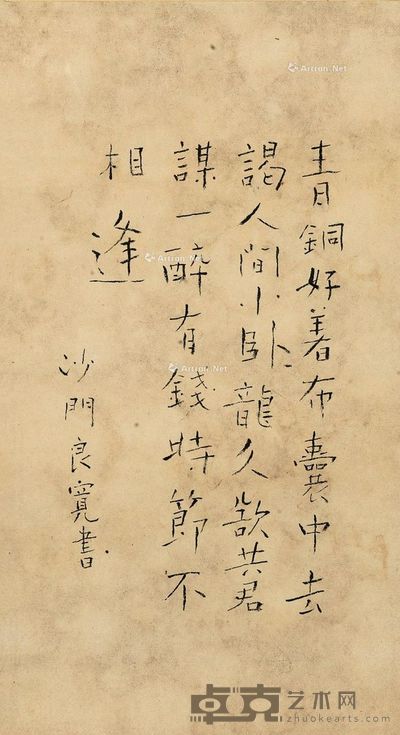 青銅好著布囊中去
謁人間小臥龍久欲共君
謀一醉有錢時節不
相逢
沙門良寬書
Artron.Net
Artron.Net
Artron.Net
Artron.Net
卓克艺术网
zhuokearts.com